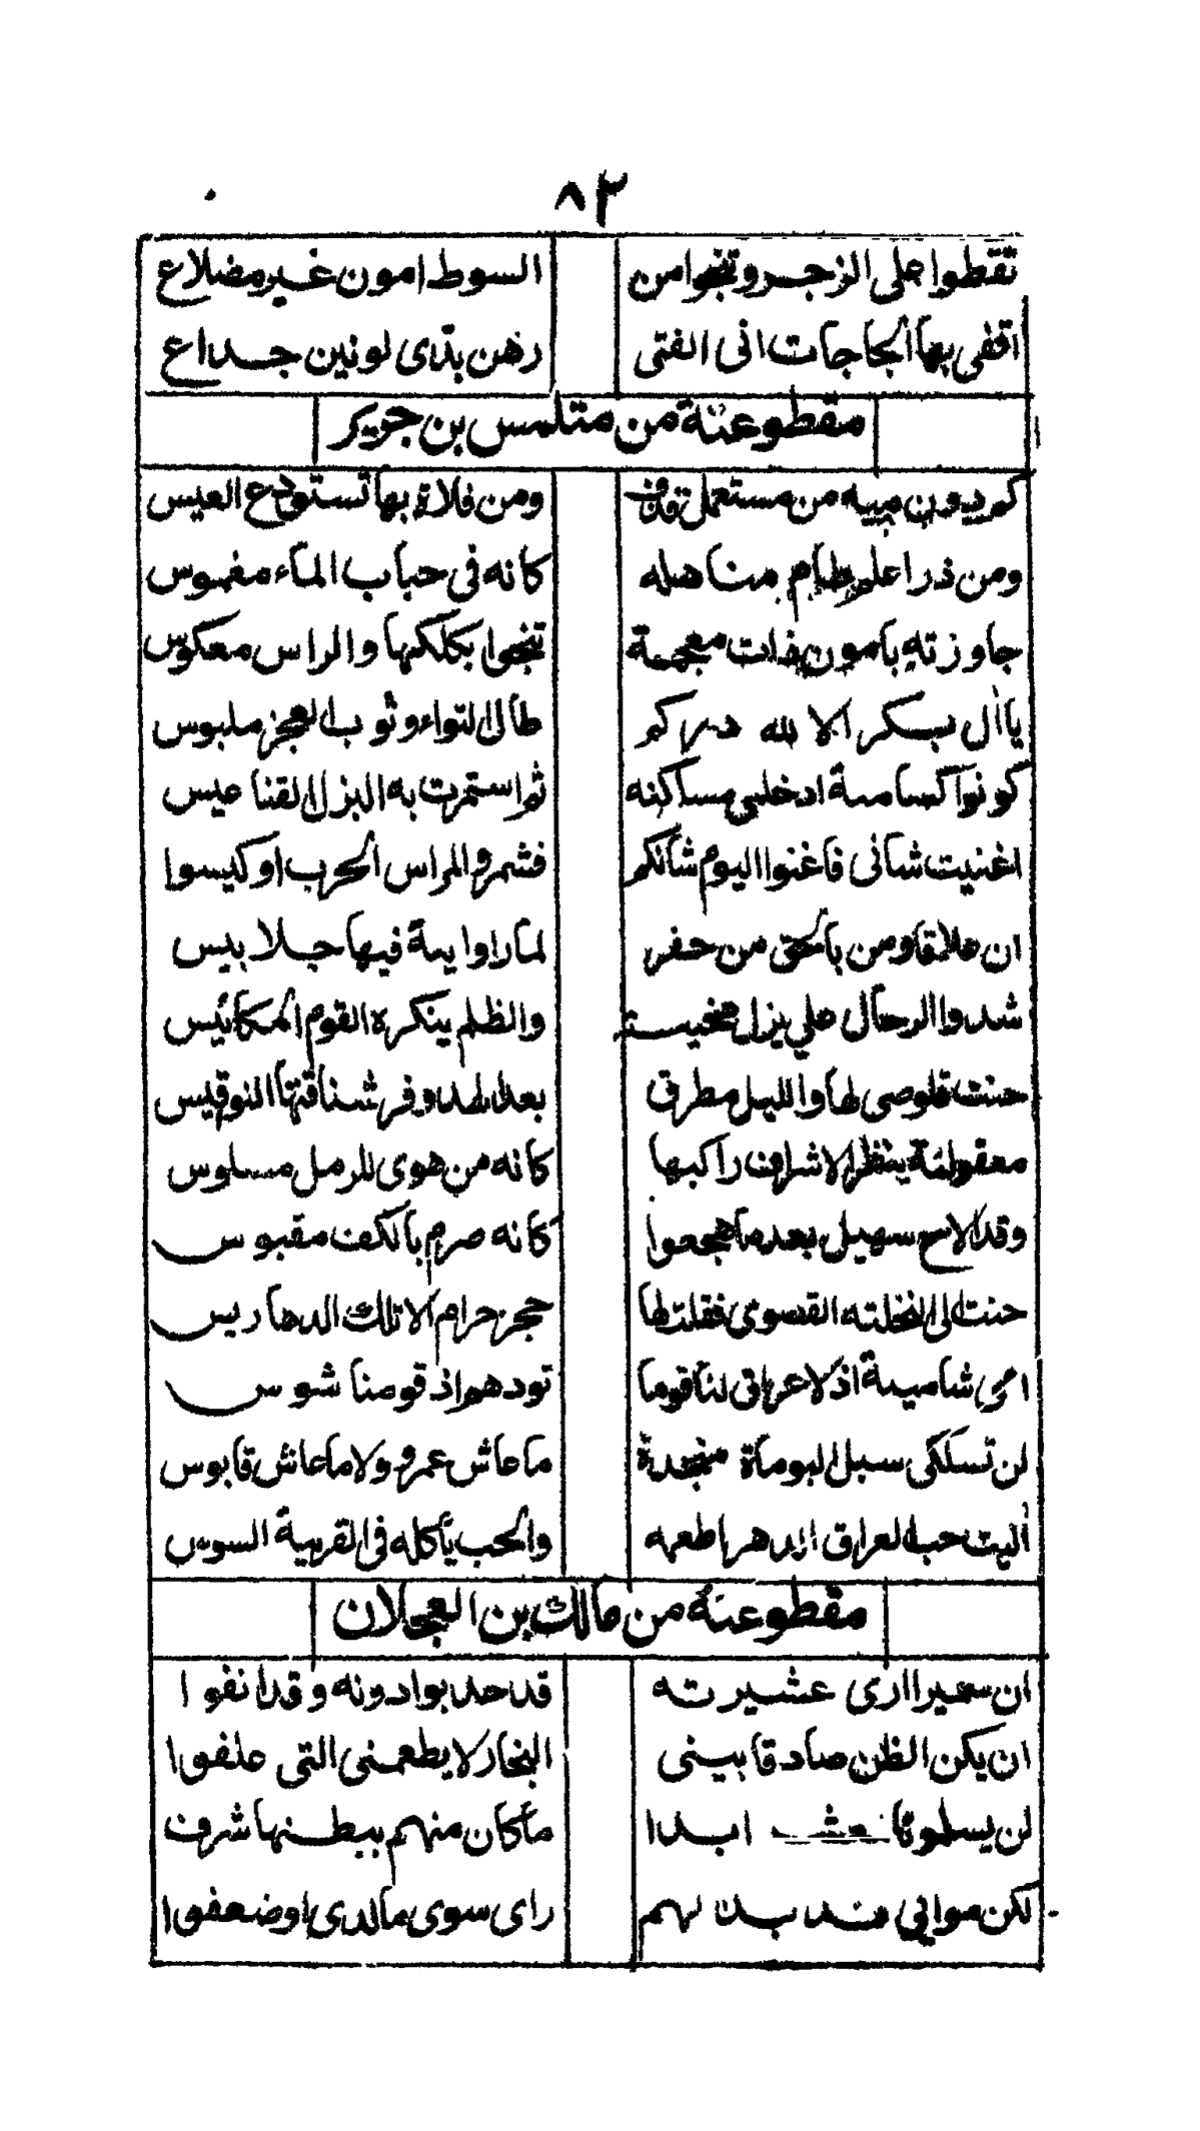 ٨٣
تقطوا على الزجر وتنجوا من السوط امون غير مضلاع
اقضى بها الحاجات انى الفتى رهن بذى لونين جداع
مقطوعنة من متلمس بن جرير
كم دون ميه من مستعمل قذف ومن فلاة بها تستودع العيس
ومن ذرا علم طام مناهله كانه فى حباب الماء مغموس
جاوزته بامون ذات معجمة تنجوا بكلكلها والراس معكوس
يا ال بكر الا لله دركم طال الثواء وثوب العجز ملبوس
كونوا كسامة اد خلى مساكنه ثم استمرت به البزل القنا عيس
اغنيت شانى فاغنوا اليوم شانكم فشمرو المراس الحرب او كيسوا
ان علاقا ومن بالحق من حضر لما راوا ية فيها جلا بيس
شدوا الرحال علي بزل مخيسته والظلم ينكره القوم المكائيس
حنت قلوصى لها والليل مطرق بعد الهدو وفر شناقتها النوقيس
معقولة ينظر الاشراق راكبها كانه من هوى للرمل مسلوس
وقد الاح سهيل بعد ما هجعوا كانه صرم بالكف مقبوس
حنت الى النخلته القصوى فقلت لها حجز حرام الا تلك الدهاريس
امى شامية اذ لا عراق لنا قوما تودهم اذ قومنا شوس
لن تسلكى سبل البوماة منجدة ما عاش عمرو ولا ما عاش قابوس
اليت حب العراق الدهر اطعمه والحب ياكله فى القرية السوس
مقطوعنة من مالك بن العجلان
ان سميرا ارى عشيرته قد حدبوا دونه وقد انفوا
ان يكن الظن صادقا ببنى النجار لا يطعمنى التى علفوا
لن يسلمونا ابدا ما كان منهم ببطنها شرف
لكن موالي بدا لهم راى سوى ما لدى اوضعفوا